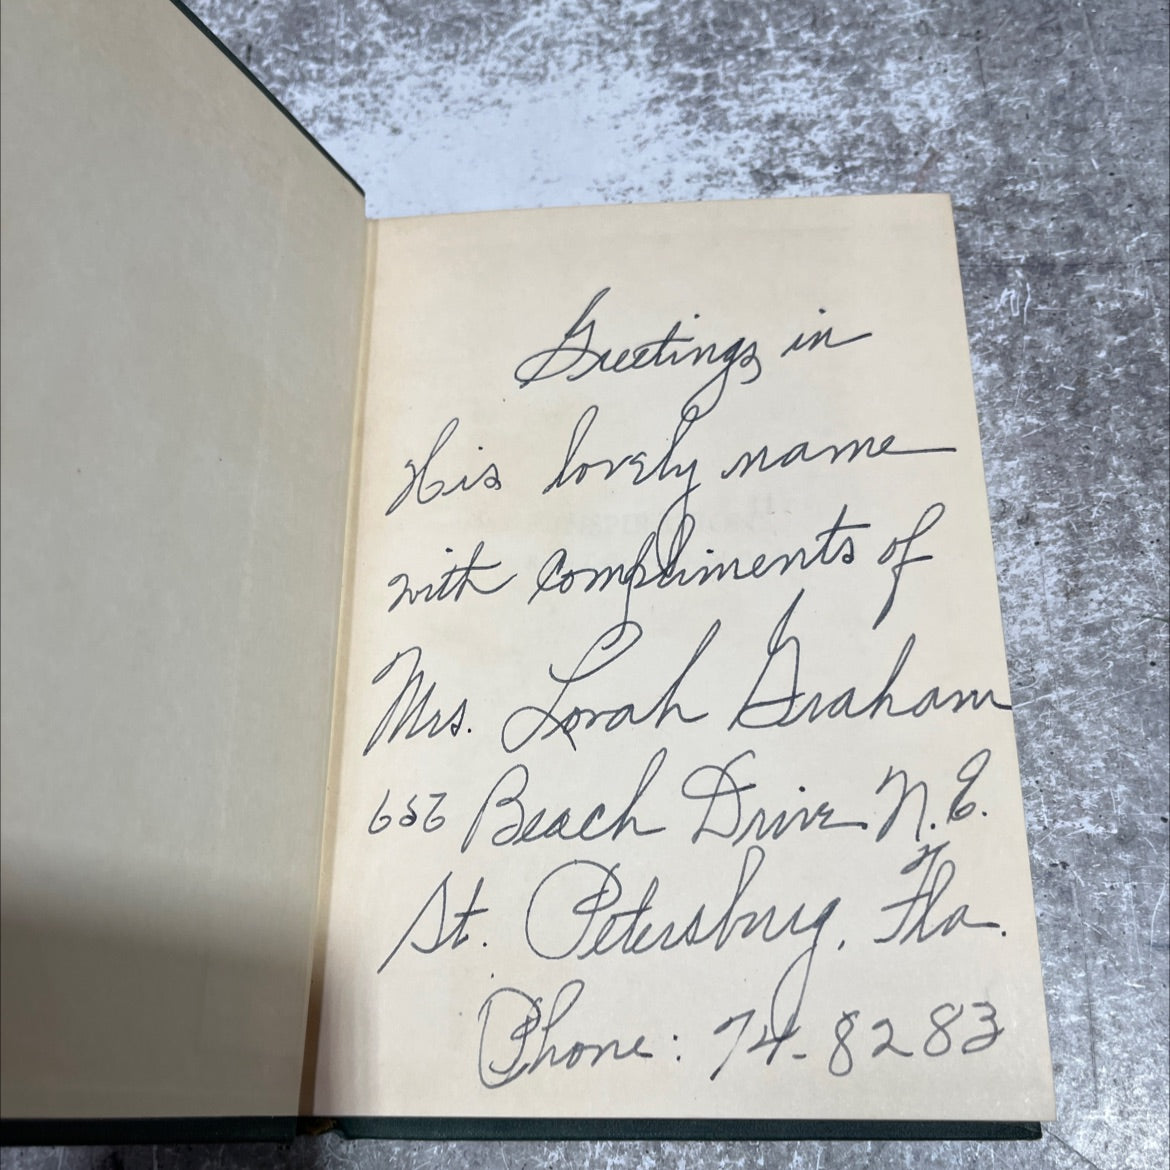 Greetings in
His lovely name
with compliments of
Mrs. Lorah Graham
656 Beach Drive N.E.
St. Petersburg, Fla.
Phone: 74-8283